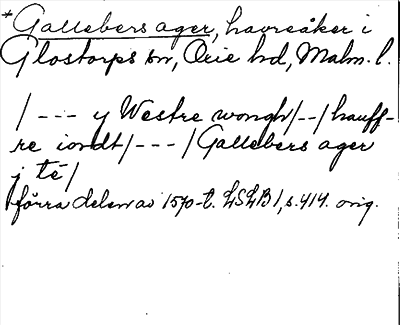 *Gallebers ager, havreåker i
Glostorps sn, Oxie hd, Malm. l.
/--- y Westre wongh/--/hauff-
re iordt/---/Gallebers ager
j té/
förra delen av 1570-t. LSLB 1, s. 414. orig.